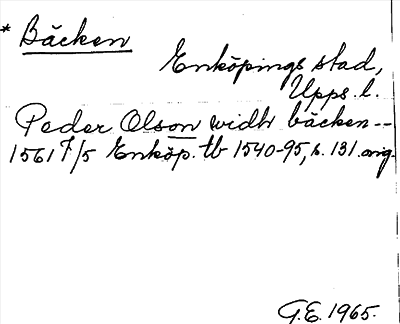 * Bäcken
Enköpings stad,
Upps. l.
Peder Olson widh bäcken --
1561 7/5 Enköp. tb 1540-95, s. 131. orig.
G.E. 1965.